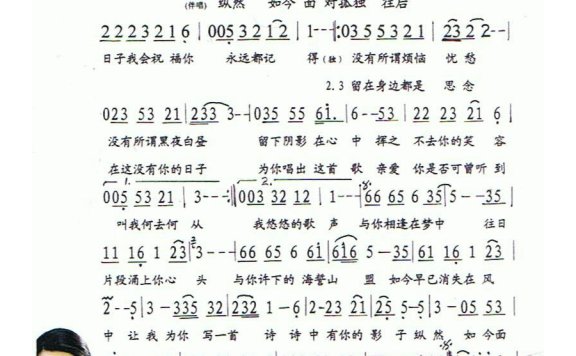 (伴唱) 纵然 如今面对孤独 往后
222321 6 | 0053212 | 1--:|035 5321 | 232--- |
日子我会祝 福你 永远都记 得(独)没有所谓烦恼 忧愁
2.3 留在身边都是 思念
023 53 21 | 233 3-- | 035 55 61. | 6--53 | 22 23 21 6 |
没有所谓黑夜白昼 留下阴影在心 中 挥之 不去你的笑 容
在这没有你的日子 为你唱出 这首 歌 亲爱 你是否可曾听到
1. 2.
005 53 21 | 3---:|003 32 12 | 1---| 66 65 6 35 | 5--35 |
叫我何去何 从 我悠悠的歌 声 与你相逢在梦中 往日
11 16 1 23 | 3--3 | 66 65 6 61 | 616 5--35 | 11 16 1 23 |
片段涌上你心 头 与你许下的 海誓山 盟 如今早已消失在风
2--5 | 3--335 32 | 232 1-6 | 2-23 21 | 25 5-5 | 3-05 53 |
中 让 我 为你 写一首 诗 诗中 有你的 影 子 纵然 如今面